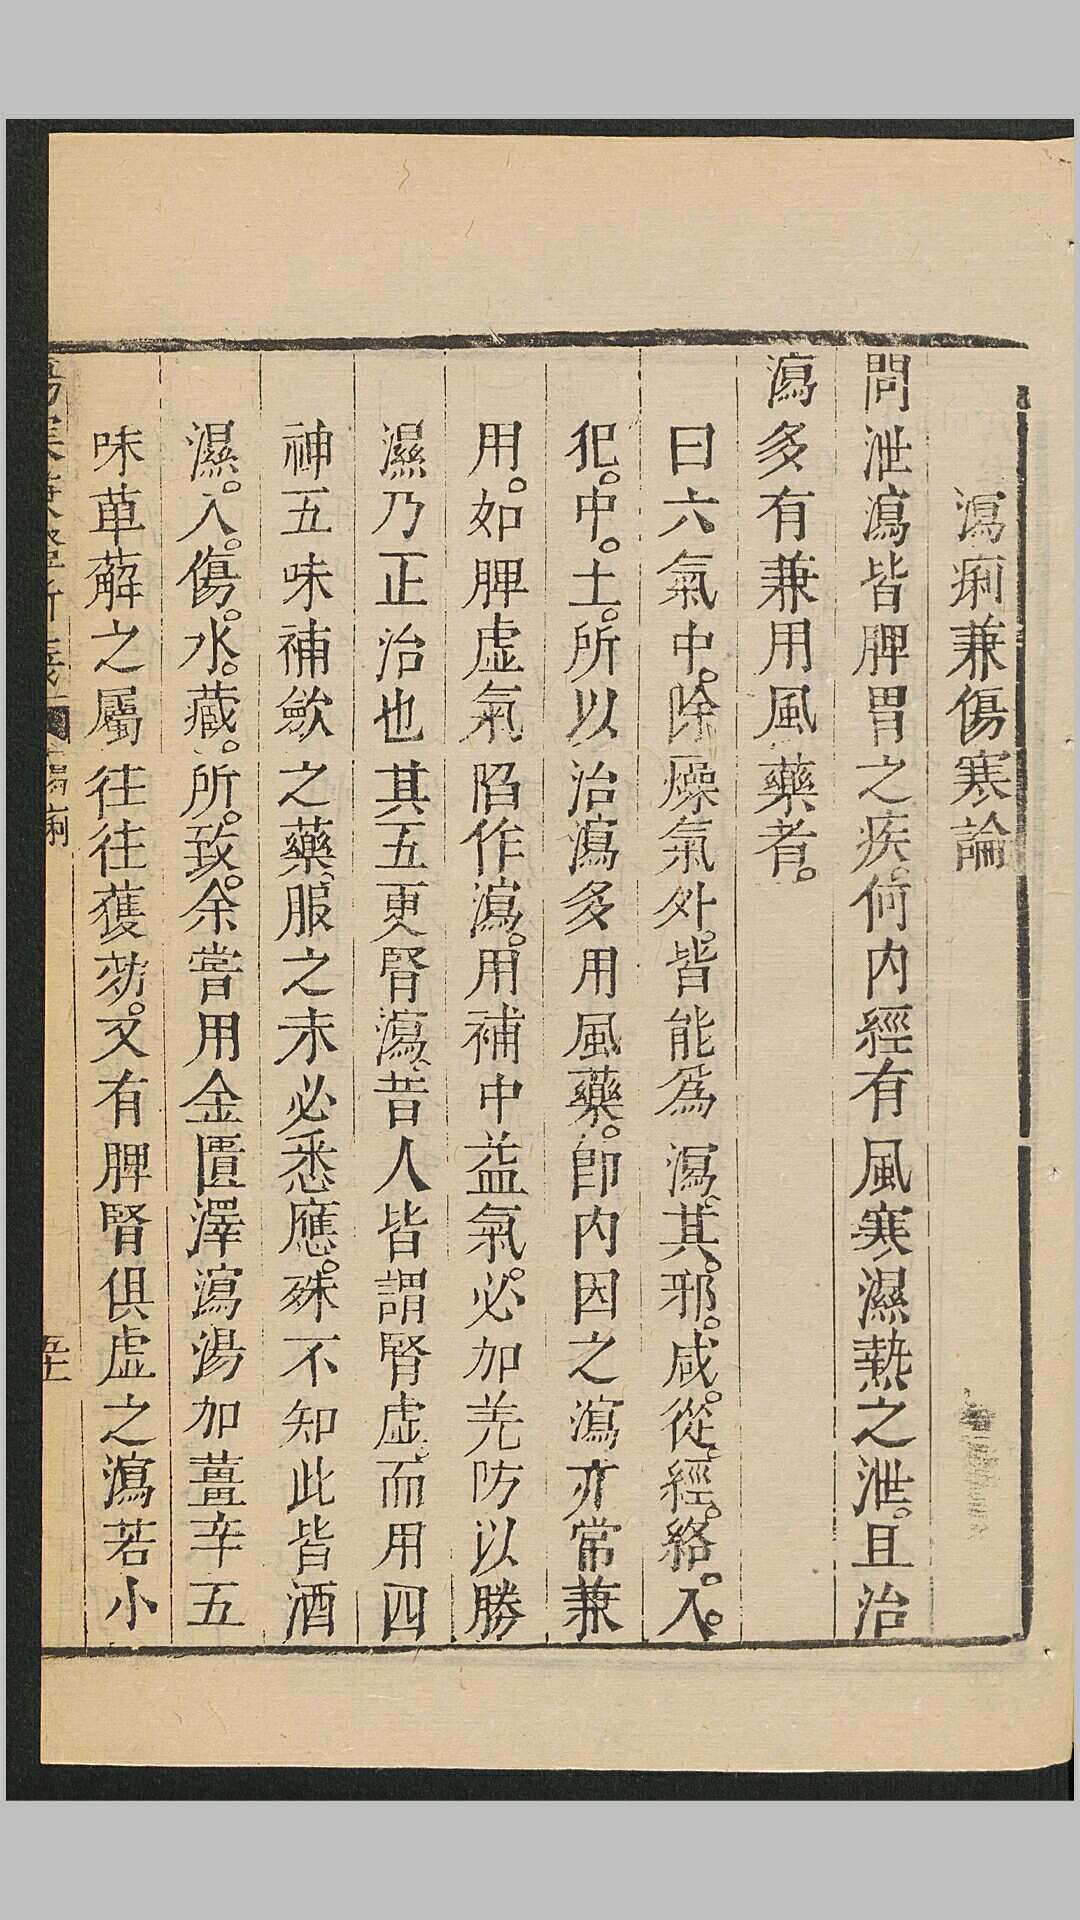 瀉痢兼傷寒論
問泄瀉皆脾胃之疾。何内經有風寒濕熱之泄。且治
瀉多有兼用風藥者。
曰六氣中。除燥氣外。皆能爲瀉。其。邪。咸。從。經。絡。入。
犯。中。土。所以治瀉多用風藥。卽内因之瀉亦常兼
用。如脾虛氣陷作瀉。用補中益氣。必加羌防以勝
濕乃正治也其五更腎瀉。昔人皆謂腎虛。而用四
神五味補歛之藥。服之未必悉應。殊不知此皆酒
濕。入。傷。水。藏。所。致。余嘗用金匱澤瀉湯加薑辛五
味萆薢之屬往往獲効。又有脾腎俱虛之瀉若小